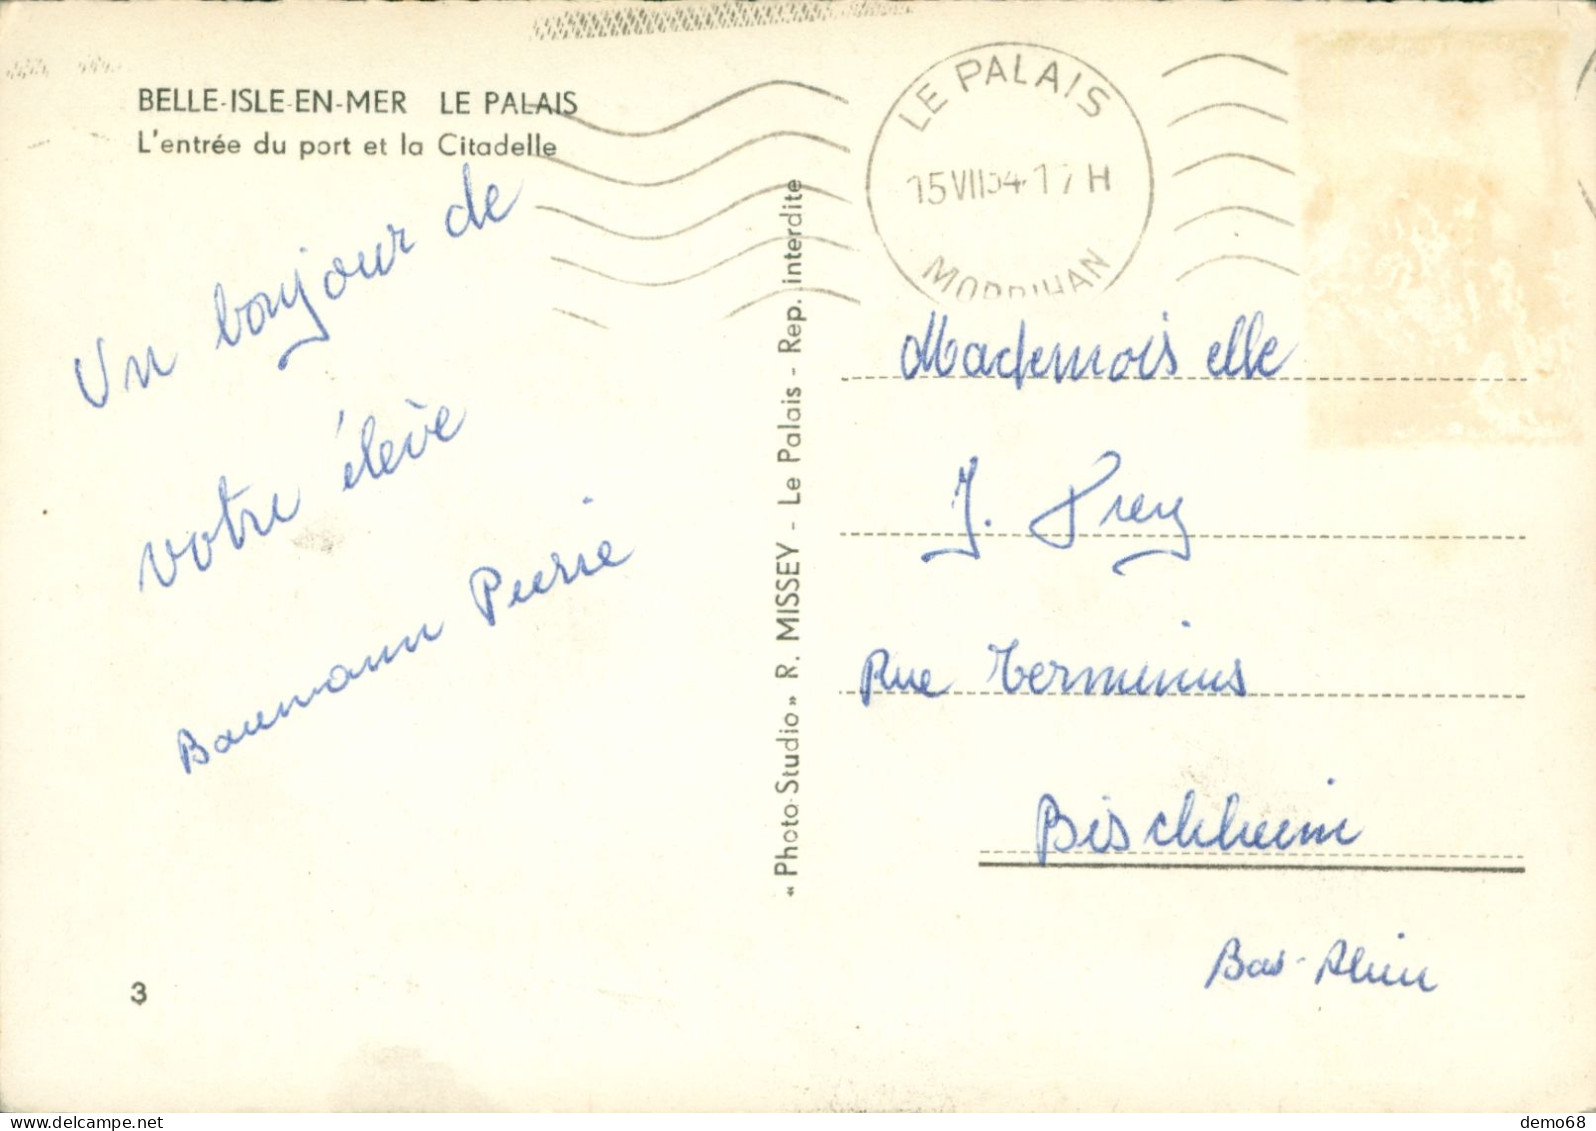 BELLE-ISLE-EN-MER LE PALAIS
L'entrée du port et la Citadelle
LE PALAIS
15 VII 54 17 H
MORBIHAN
Un bonjour de
votre élève
Baumann Pierre
« Photo-Studio » R. MISSEY - Le Palais - Rep. interdite
Mademoiselle
J. Frey
Rue Terminus
Bischheim
Bas-Rhin
3
delcampe.net
demo68